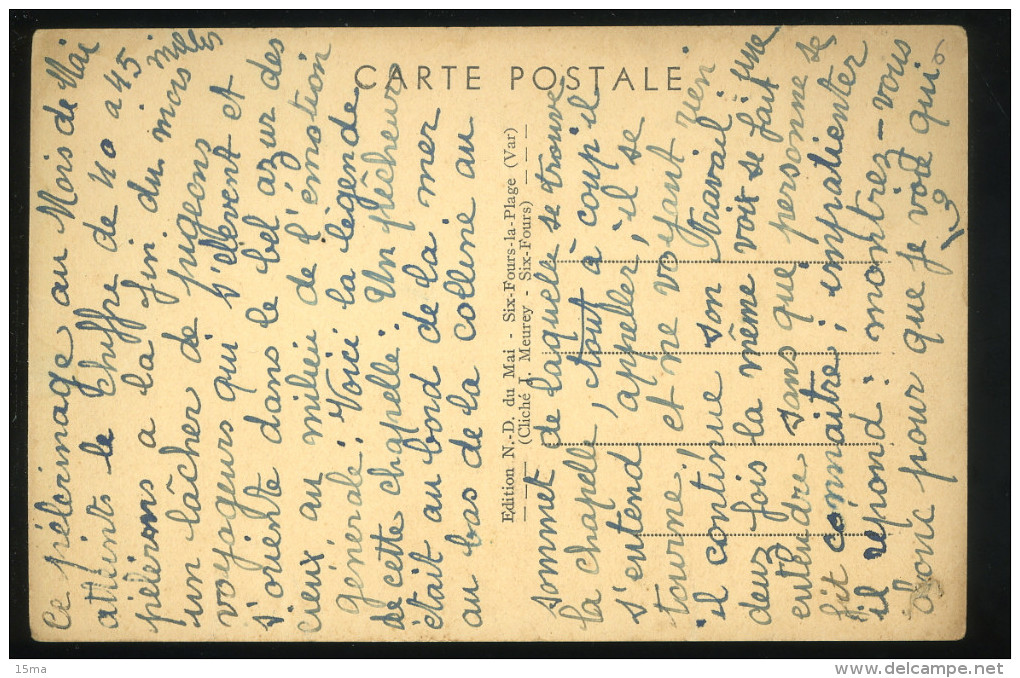 CARTE POSTALE
ce pélérinage au Mois de Mai
atteints le chiffre de 40 a 45
mille
pélérins a la fin du mois
un lâcher de pigeons
voyageurs qui s'élèvent et
s'oriente dans le bel azur des
cieux au milieu de l'émotion
générale! Voici la légende
de cette chapelle: Un pêcheur
était au bord de la mer
au bas de la colline au
Edition N.-D. du Mai - Six-Fours-la-Plage (Var)
(Cliché J. Meurey - Six-Fours)
sommet de laquelle se trouve
la chapelle, tout à coup il
s'entend appeler, il se
tourne, et ne voyant rien
il continue son travail
deux fois la même voix se fait
entendre sans que personne se
fit connaître, impatienter
il répond: montrez-vous
donc pour que je voie qui
15ma
delcampe.net